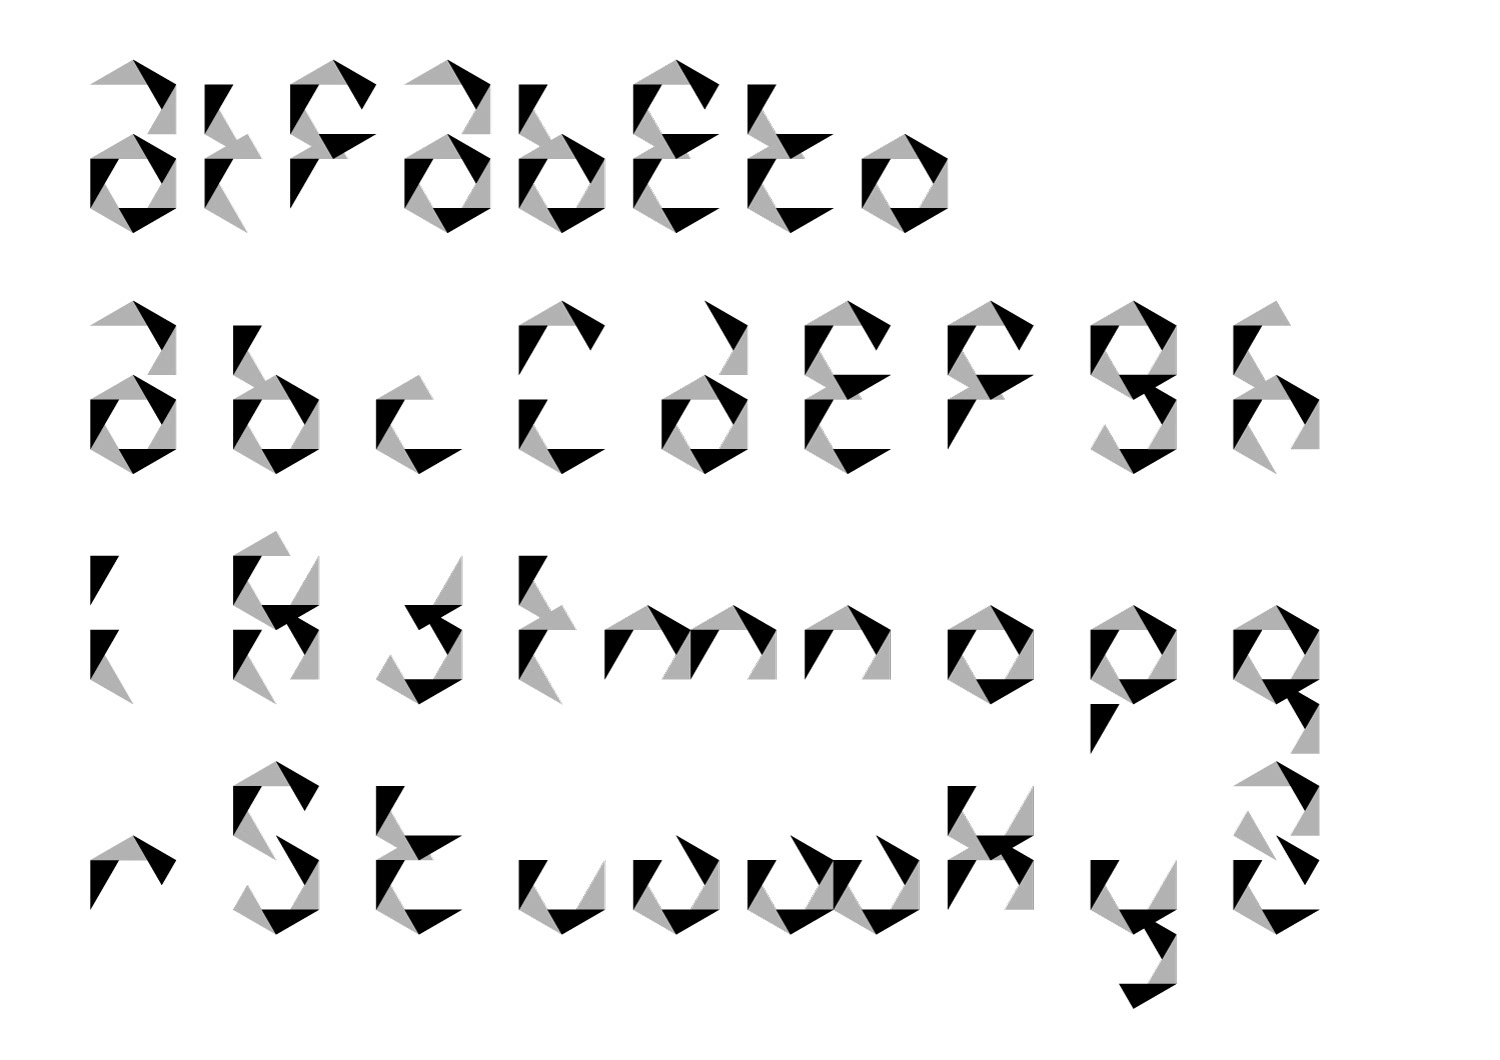 alfabeto
a b c C d e f g h
i k j l m n o p q
r s t u v w x y z